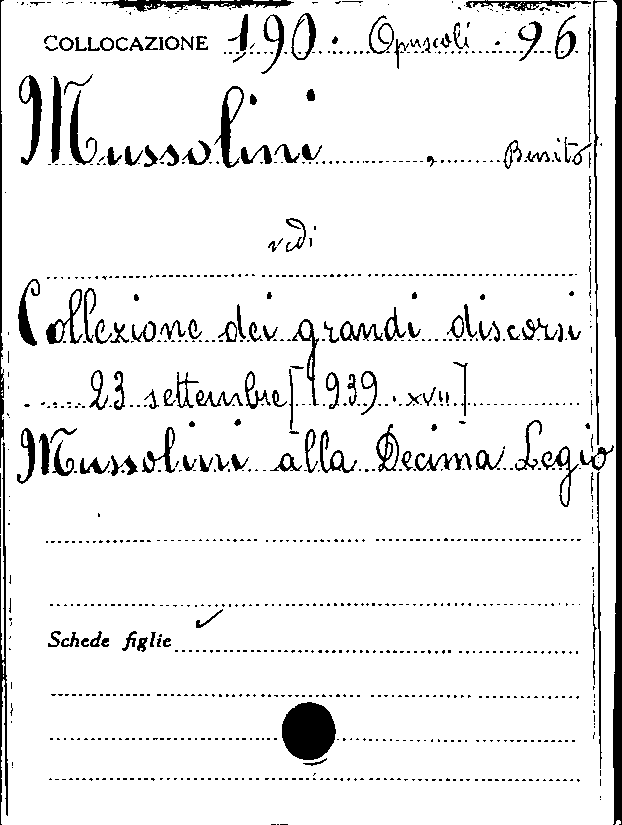 COLLOCAZIONE 190. Opuscoli. 96
Mussolini, Benito
vedi
Collezione dei grandi discorsi
23 settembre [1939. XVII]
Mussolini alla Decima Legio
Schede figlie